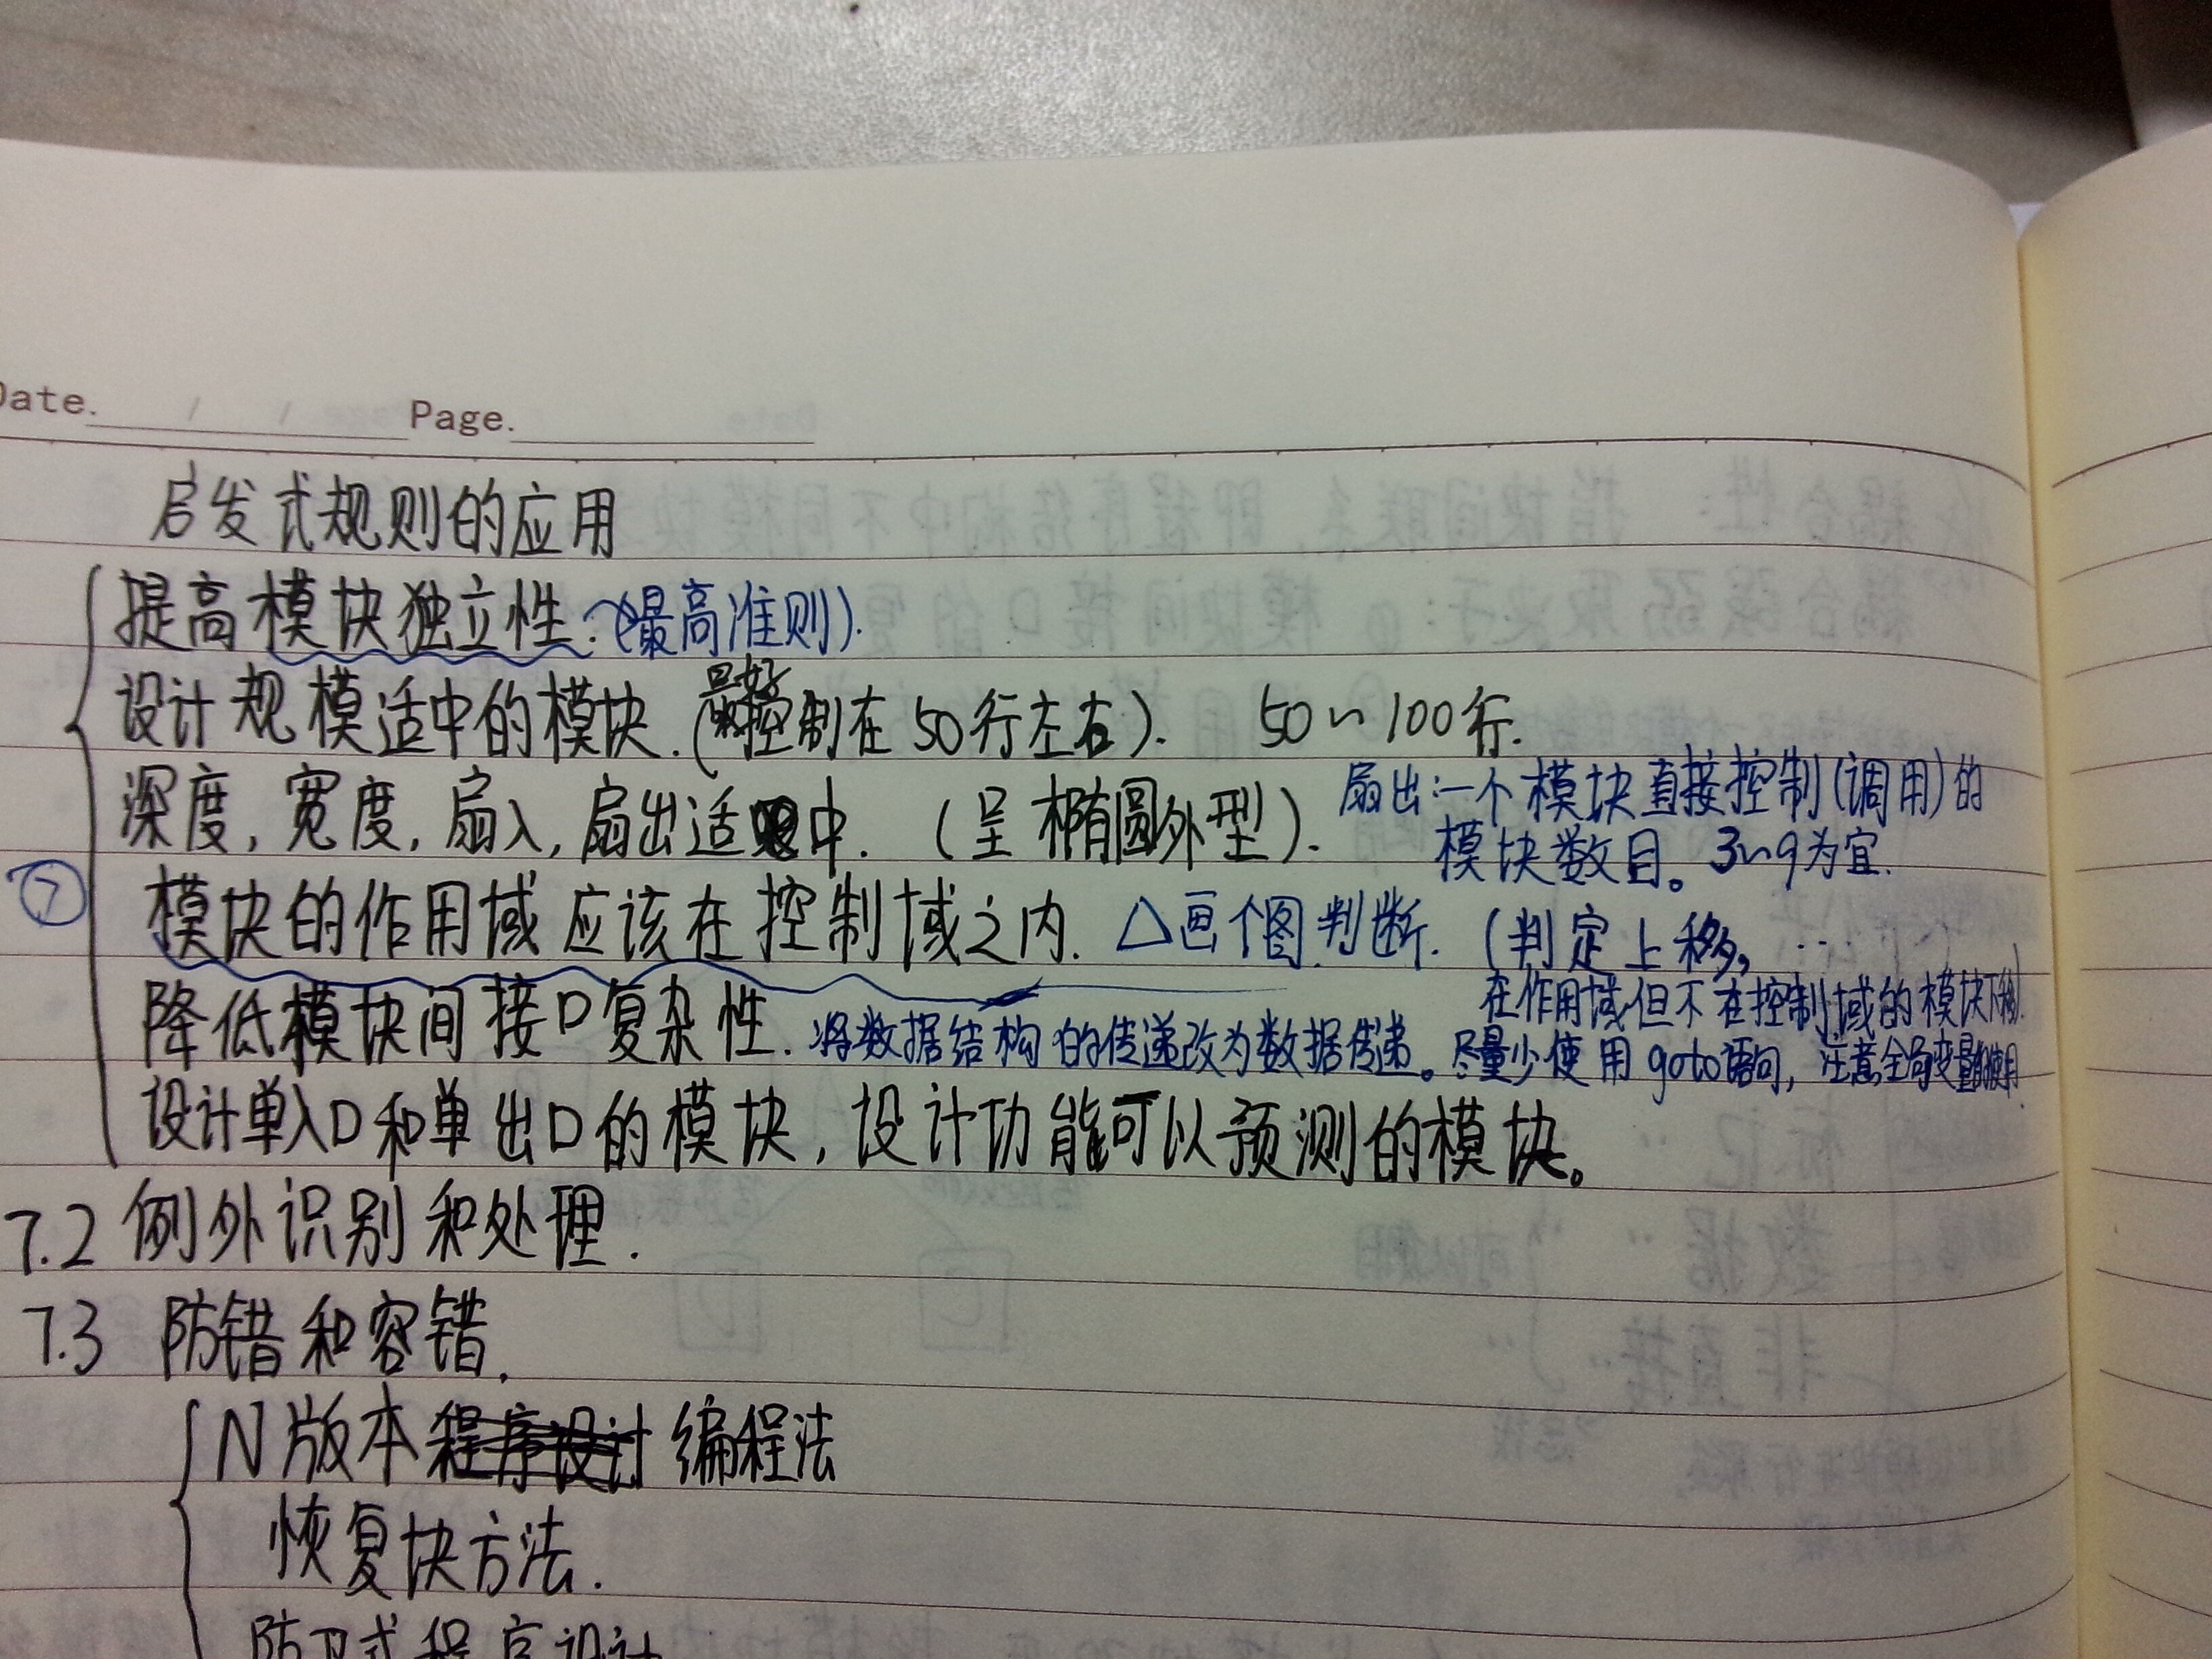 Date. / / Page.
启发式规则的应用
提高模块独立性.(最高准则).
设计规模适中的模块.(最好控制在50行左右). 50~100行.
深度,宽度,扇入,扇出适中. (呈椭圆外型). 扇出:一个模块直接控制(调用)的
模块数目。3~9为宜.
⑦
模块的作用域应该在控制域之内. △画个图判断. (判定上移,
在作用域但不在控制域的模块下移)
降低模块间接口复杂性. 将数据结构的传递改为数据传递。尽量少使用goto语句,注意全局变量的使用
设计单入口和单出口的模块,设计功能可以预测的模块。
7.2 例外识别和处理.
7.3 防错和容错.
N版本程序设计编程法
恢复块方法.
防卫式程序设计